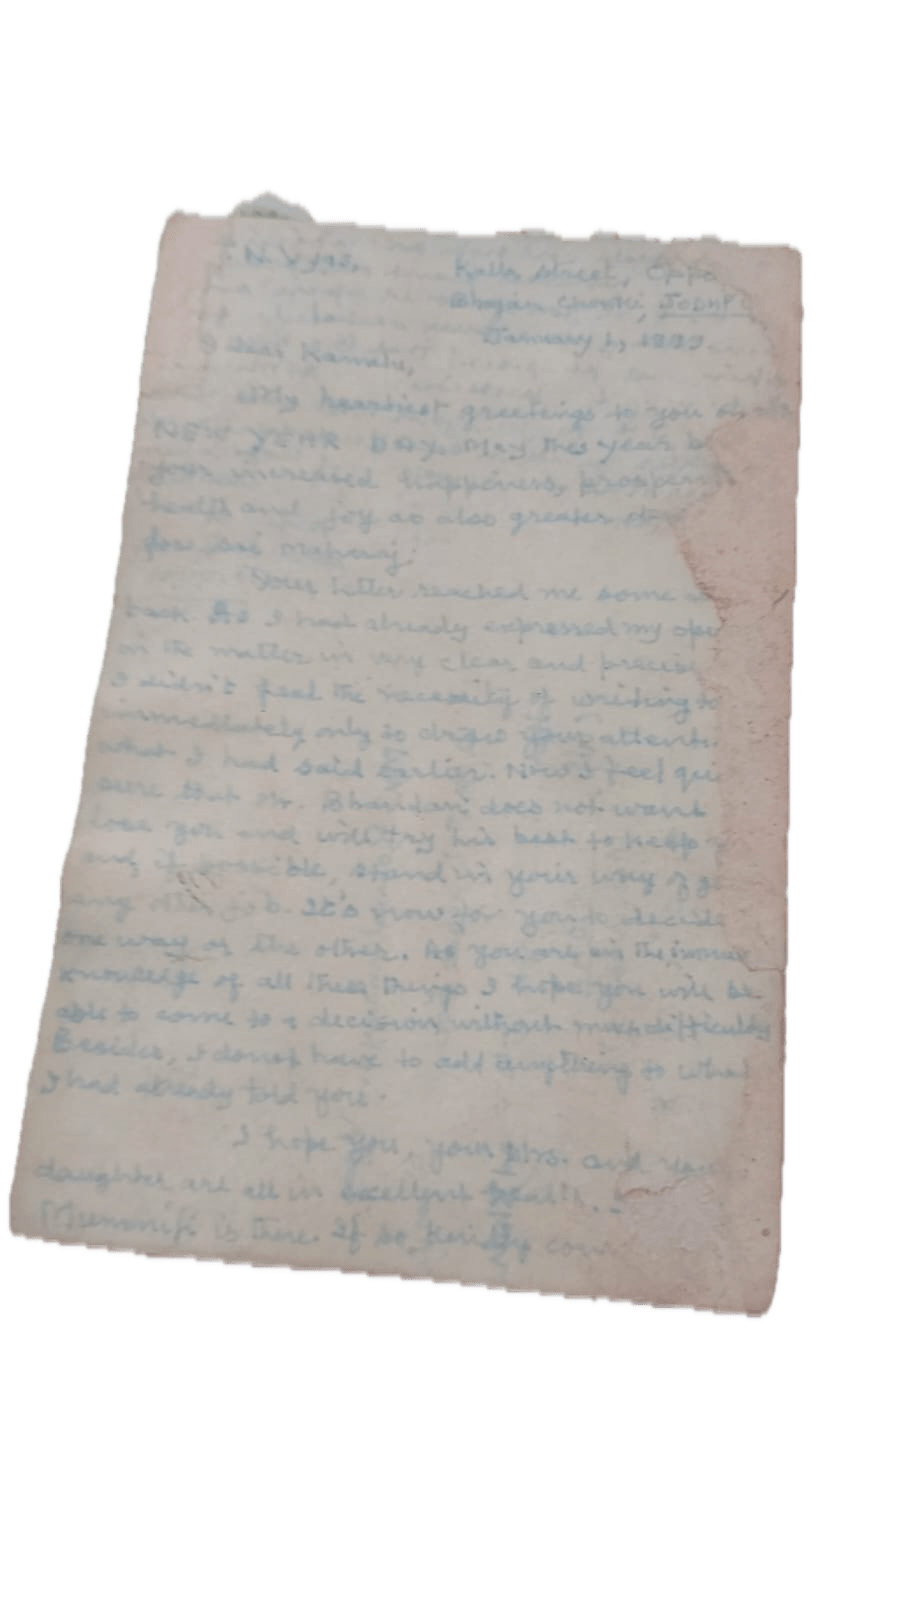 N. Vyas,
Kalla Street, Oppo
Chowki, JODHPU
January 1,
dear Kamalu,
My heartiest greetings to you on
NEW YEAR DAY. May this year b
your increased happiness, prosperi
health and joy as also greater
for Sri Maharaj.
Your letter reached me some
back. As I had already expressed my opi
in the matter in very clear and precise
I didn't feel the necessity of writing to
immediately only to draw your attenti
what I had said earlier. Now I feel qui
sure that Mr. Bhandari does not want
lose you and will try his best to keep
and, if possible, stand in your way of
any other job. It's now for you to decide
one way or the other. As you are in the
knowledge of all these things I hope you will be
able to come to a decision without much difficulty
Besides, I do not have to add anything to what
I had already told you.
I hope you, your Mrs. and
daughter are all in excellent health.
is there. If so, kindly